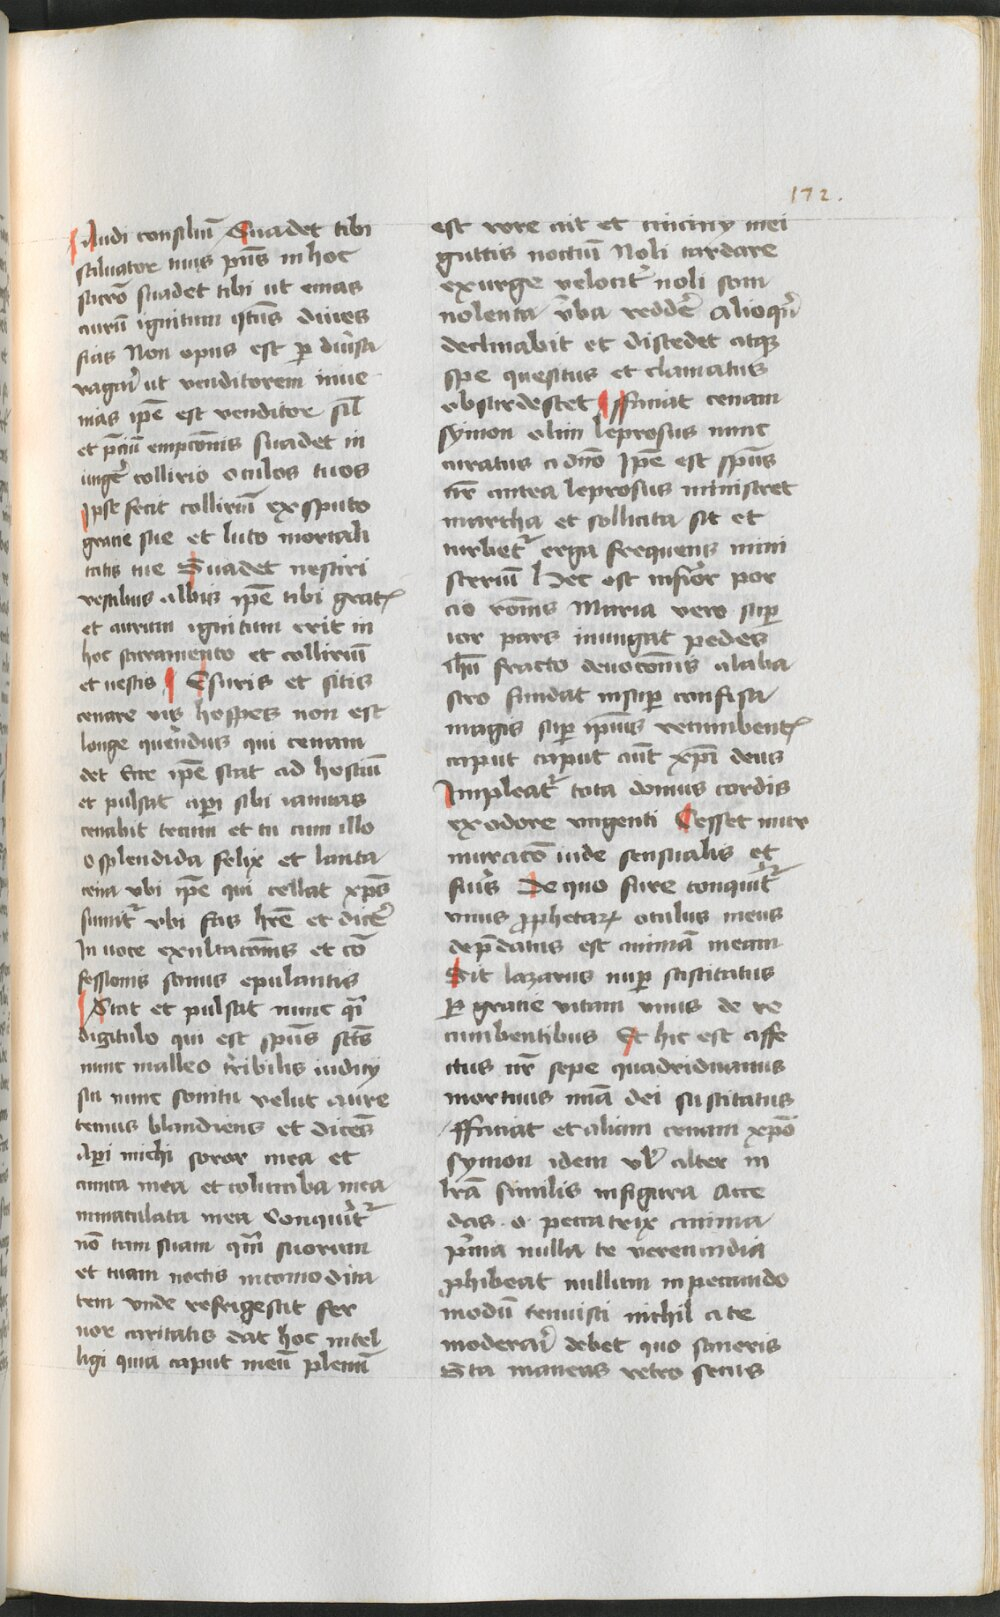 172.
Audi consiliū Suadet tibi
saluator tuus pn̄s in hoc
sacrō suadet tibi ut emas
aurū ignitum qtūs diues
fias Non opus est ꝑ diūsa
vagari ut venditorem inue
nias ip̄e est venditor sil̄
et p̄ciū empcōnis suadet in
ungē collirio oculos tuos
Ipse fecit colliriū ex sputo
gracie sue et luto mortali
tatis tue Suadet vestiri
vestibus albis ip̄e tibi
et aurum ignitum erit in
hoc sacramento et colliriū
et uestis ¶ Esuris et sitis
cenare vis hospes non est
longe querendus qui cenam
det Ecce ip̄e stat ad hostiū
et pulsat aperi sibi ianuas
cenabit tecum et tu cum illo
O splendida felix et lauta
cena vbi ip̄e qui cellat xp̄s
sumit᷑ vbi fas hr̄e et dicē
In uoce exultacōnis et cō
fessionis sonus epulantis
Stat et pulsat nunc qͣi
digitulo qui est sp̄us sct̄s
nunc malleo tribilis iudicij
sui nunc sonitu velut aure
tenuis blandiens et dicēs
Aperi michi soror mea et
amica mea et columba mea
inmaculata mea Conquirit᷑
nō tam suam qͣm suorum
et tuam noctis incomodita
tem vnde refrigescit fer
uor caritatis dat hoc intel
ligi quia caput meū plenū
est rore ait et cincinij mei
guttis noctiū Noli tardare
exurge velocit᷑ noli som
nolenta v̄ba reddē Alioqn̄
declinabit et discedet atqꝫ
spe quesitus et clamatus
obsurdescet ¶ ffaciat cenam
symon olim leprosus nunc
curatus a dn̄o Ip̄e est sp̄us
nr̄ antea leprosus ministret
martha et sollicita sit et
turbet᷑ erga frequens mini
steriū Hec est inferior por
cio rōnis Maria vero supe
ior pars inungat pedes
ihū fracto deuocōnis alaba
stro fundat insuper confisa
magis super ip̄ius recumbent
caput caput aūt xp̄i deus
Impleat᷑ tota domus cordis
ex odore vngenti Cesset mur
muracō iude sensualis et
furis De quo fure conquirit᷑
vnus ꝓphetaꝝ oculus meus
dep̄datus est animā meam
Sit lazarus nuper suscitatus
ꝑ gracie vitam vnus de re
cumbentibus Et hic est affe
ctus nr̄ sepe quadriduanus
mortuus mīa dei suscitatus
ffaciat et aliam cenam xp̄o
symon idem vl̄ alter in
lr̄a similis in figura Acce
das o peccatrix anima
p̄ma nulla te verecundia
ꝓhibeat nullum in peccando
modū tenuisti nichil a te
moderari debet quo saneris
Sta maneas retro secus